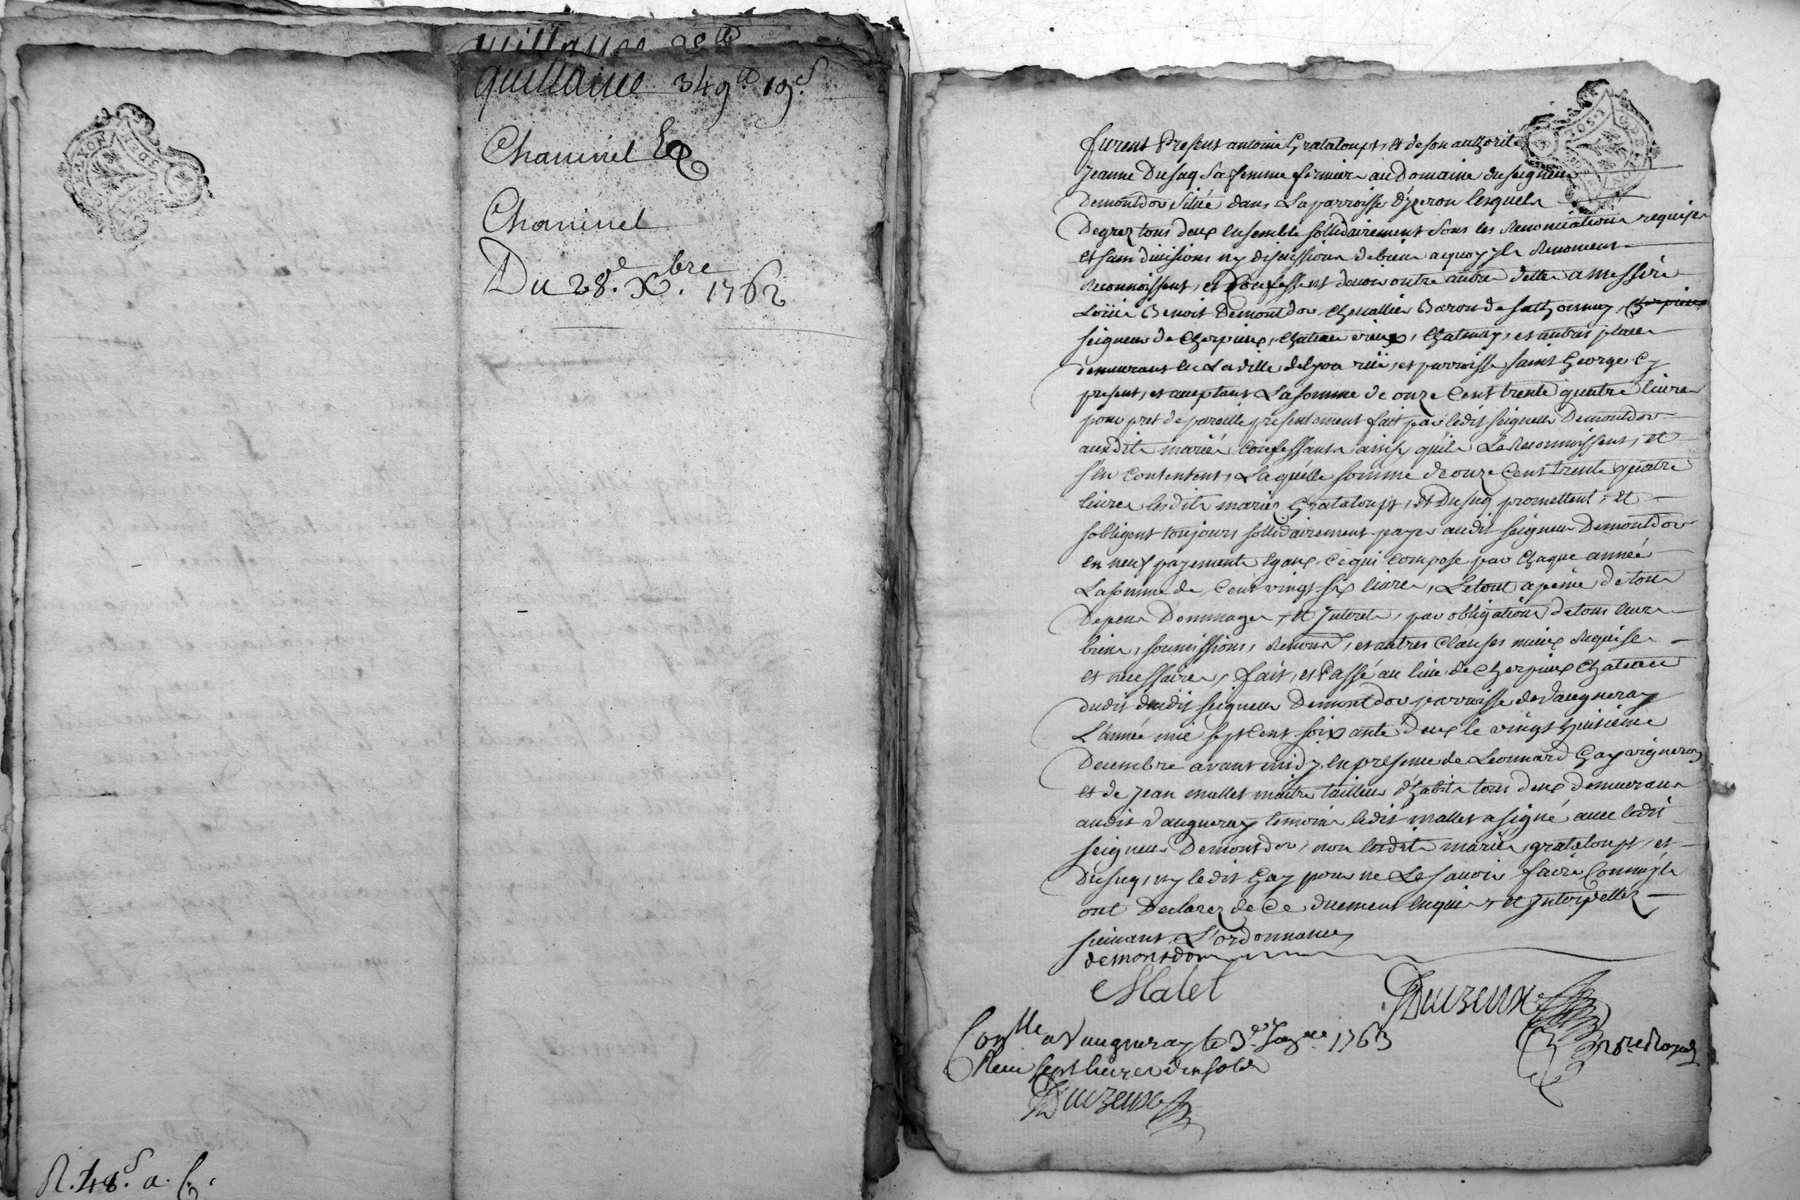 quittance
quittance 349tt 19s
Chaninel &
Chaninel
Du 28e Xbre 1762
R. 48s a. C.
LYON
furent Presens antoine Grataloups, et de son authorité
Jeanne Dusuq Sa femme fermiers au Domaine du seigneur
Demontdor Situé dans La parroisse d'yzeron lesquels
Degrez tous deux Ensemble sollidairement Sous les Renonciations requises
et sans divisions ny discussions de biens a quoy ils Renoncent
Reconnoissent, et Confessent devoir outre autre dette a messire
Loüis Benoit Demontdor Chevallier Baron de
seigneur de Cherpieux, Chateau vieux, Chatenay, et autres places
demeurant En La ville de Lyon rüe, et parroisse Saint George Cy
present, et acceptant La somme de onze Cent trente quatre livres
pour pret de pareille presentement fait par ledit seigneur Demontdor
auxdits mariés Confessants ainsy qu'ils Le Reconnoissent, et
s'en Contentent, Laquelle somme de onze Cent trente quatre
livres lesdits mariés Grataloups, et Dusuq promettent, et
sobligent toujours sollidairement payer audit seigneur Demontdor
en neuf payements Egaux, ce qui Compose par Chaque année
La somme de Cent vingt Six livres, Le tout a peine de tous
Depens Dommages et Interets, par obligation de tous leurs
biens, soumissions, Renond., et autres Clauses mieux Requises
et necessaires, fait, et Passé au lieu de Cherpieux Chateau
dudit dudit seigneur Demontdor parroisse de Vaugneray
L'année mil sept Cent soixante Deux le vingt huitième
Decembre avant midy, En presence de Léonnard Gay vigneron
et de Jean mallet maitre tailleur d'habits tous deux demeurants
audit Vaugneray temoins ledit mallet a signé avec ledit
seigneur Demontdor, non lesdits mariés grataloups, et
Dusuq, ny ledit Gay pour ne Le savoir faire Comme ils
ont Declarez de Ce duement Enquis, et Interpellez
suivant L'ordonnance
demontdor
Malet
Duizeux
nre Royal
Conlle a Vaugneray le 3e Janre 1763
Reçu sept livres dix sols
Duizeux